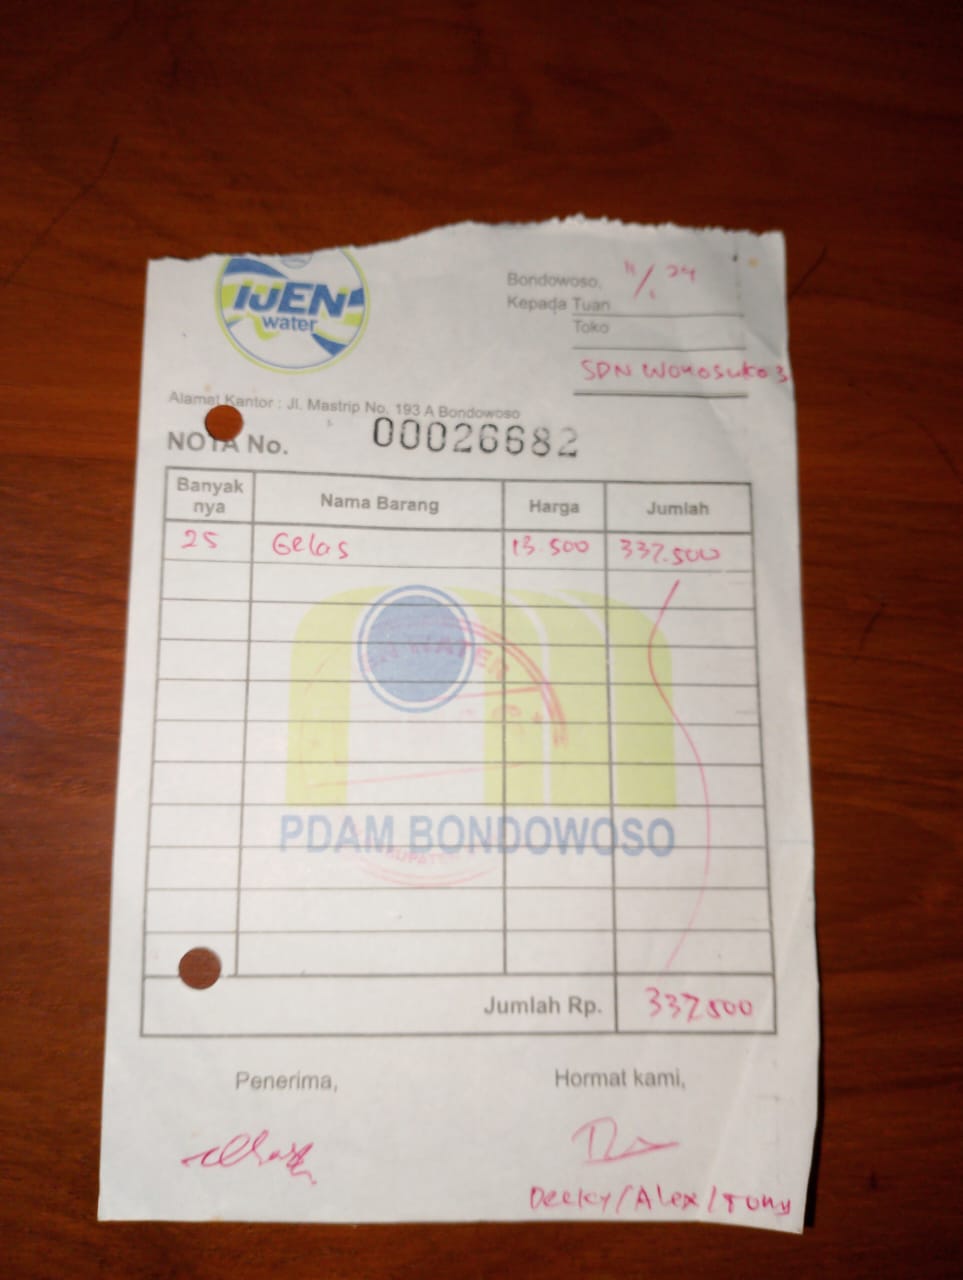 IJEN
water
Bondowoso, 11/1 24
Kepada Tuan
Toko
SDN Wonosuko 3
Alamat Kantor : Jl. Mastrip No. 193 A Bondowoso
NOTA No. 00026682
Banyak nya Nama Barang Harga Jumlah
25 Gelas 13.500 337.500
PDAM BONDOWOSO
Jumlah Rp. 337.500
Penerima, Hormat kami,
Decky/Alex/Tony